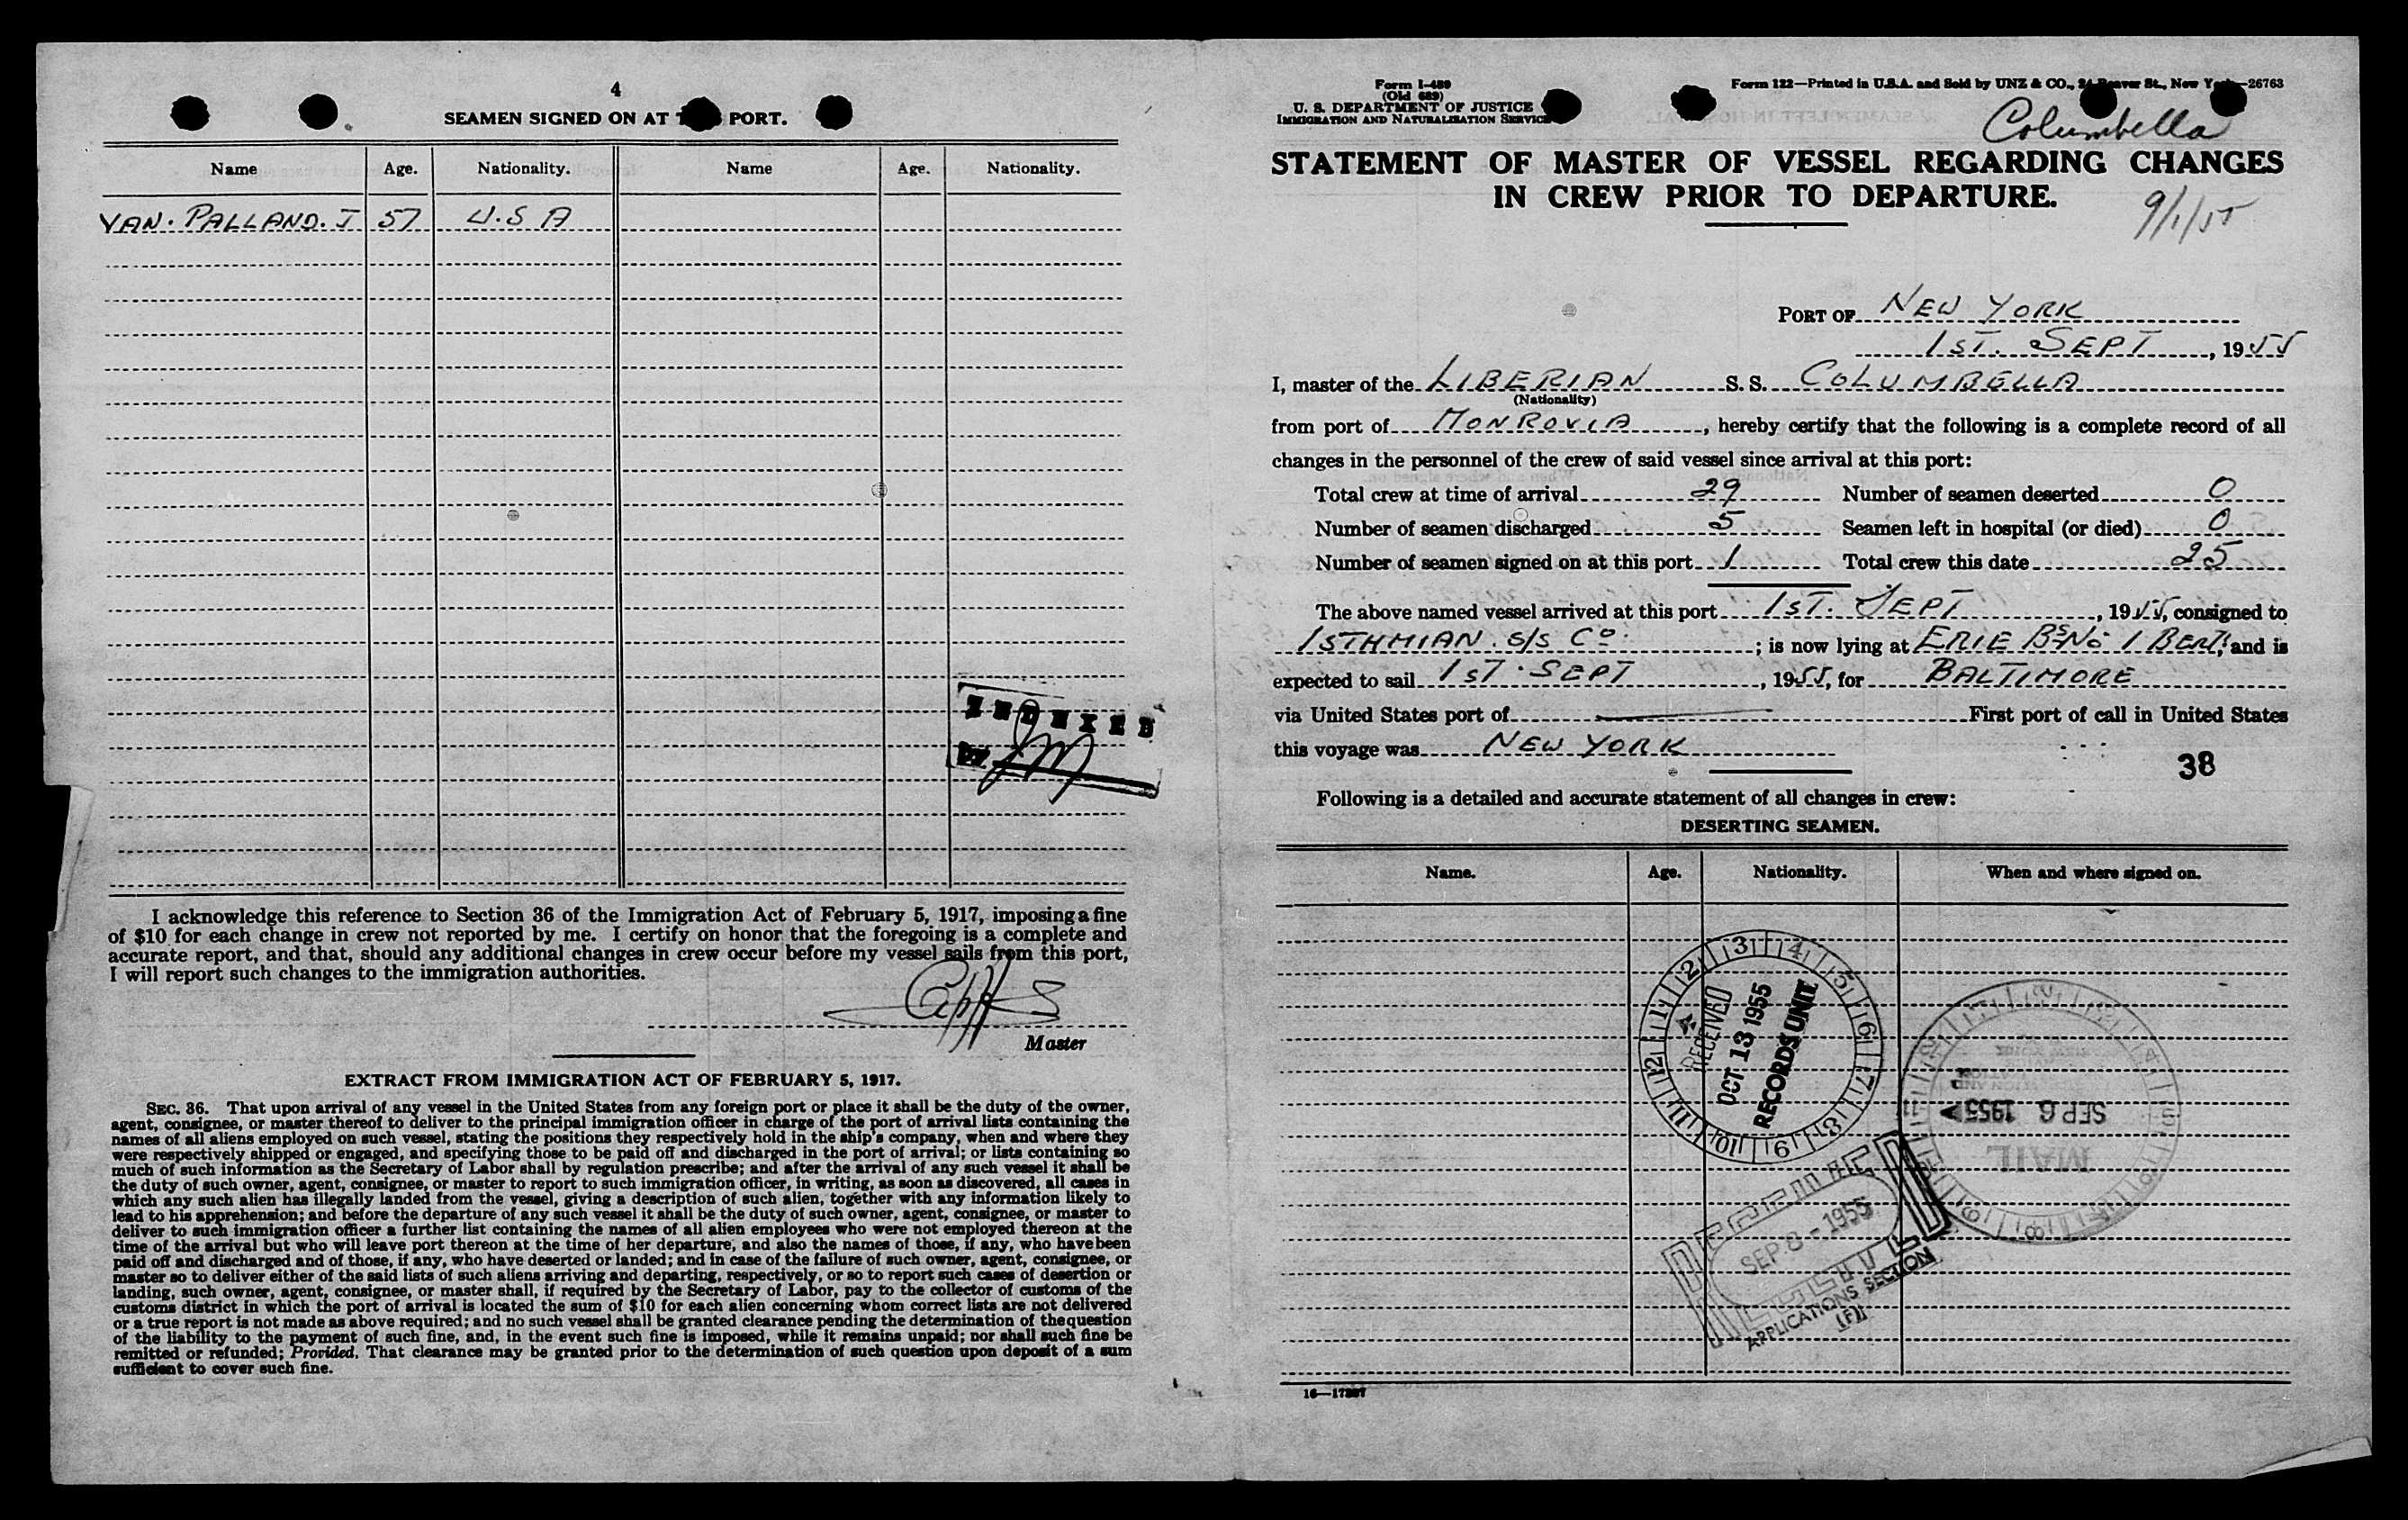 4
SEAMEN SIGNED ON AT PORT.
Name Age. Nationality. Name Age. Nationality.
VAN. PALLAND. J 57 U.S A
INDEXED
BY
I acknowledge this reference to Section 36 of the Immigration Act of February 5, 1917, imposing a fine
of $10 for each change in crew not reported by me. I certify on honor that the foregoing is a complete and
accurate report, and that, should any additional changes in crew occur before my vessel sails from this port,
I will report such changes to the immigration authorities.
Master
EXTRACT FROM IMMIGRATION ACT OF FEBRUARY 5, 1917.
SEC. 36. That upon arrival of any vessel in the United States from any foreign port or place it shall be the duty of the owner,
agent, consignee, or master thereof to deliver to the principal immigration officer in charge of the port of arrival lists containing the
names of all aliens employed on such vessel, stating the positions they respectively hold in the ship's company, when and where they
were respectively shipped or engaged, and specifying those to be paid off and discharged in the port of arrival; or lists containing so
much of such information as the Secretary of Labor shall by regulation prescribe; and after the arrival of any such vessel it shall be
the duty of such owner, agent, consignee, or master to report to such immigration officer, in writing, as soon as discovered, all cases in
which any such alien has illegally landed from the vessel, giving a description of such alien, together with any information likely to
lead to his apprehension; and before the departure of any such vessel it shall be the duty of such owner, agent, consignee, or master to
deliver to such immigration officer a further list containing the names of all alien employees who were not employed thereon at the
time of the arrival but who will leave port thereon at the time of her departure, and also the names of those, if any, who have been
paid off and discharged and of those, if any, who have deserted or landed; and in case of the failure of such owner, agent, consignee, or
master so to deliver either of the said lists of such aliens arriving and departing, respectively, or so to report such cases of desertion or
landing, such owner, agent, consignee, or master shall, if required by the Secretary of Labor, pay to the collector of customs of the
customs district in which the port of arrival is located the sum of $10 for each alien concerning whom correct lists are not delivered
or a true report is not made as above required; and no such vessel shall be granted clearance pending the determination of the question
of the liability to the payment of such fine, and, in the event such fine is imposed, while it remains unpaid; nor shall such fine be
remitted or refunded; Provided, That clearance may be granted prior to the determination of such question upon deposit of a sum
sufficient to cover such fine.
Form I-489
(Old 689)
U. S. DEPARTMENT OF JUSTICE
IMMIGRATION AND NATURALIZATION SERVICE
Form 122—Printed in U.S.A. and Sold by UNZ & CO., 24 Beaver St., New York—26763
Columbella
STATEMENT OF MASTER OF VESSEL REGARDING CHANGES
IN CREW PRIOR TO DEPARTURE.
9/1/55
PORT OF NEW YORK
1ST. SEPT, 1955
I, master of the LIBERIAN S. S. COLUMBELLA
(Nationality)
from port of MONROVIA, hereby certify that the following is a complete record of all
changes in the personnel of the crew of said vessel since arrival at this port:
Total crew at time of arrival 29 Number of seamen deserted 0
Number of seamen discharged 5 Seamen left in hospital (or died) 0
Number of seamen signed on at this port 1 Total crew this date 25
The above named vessel arrived at this port 1ST. SEPT, 1955, consigned to
ISTHMIAN. S/S Co.; is now lying at ERIE BSN No 1 BERT, and is
expected to sail 1ST. SEPT, 1955, for BALTIMORE
via United States port of First port of call in United States
this voyage was NEW YORK
38
Following is a detailed and accurate statement of all changes in crew:
DESERTING SEAMEN.
Name. Age. Nationality. When and where signed on.
RECEIVED
OCT 13 1955
RECORDS UNIT
SEP 6 1955
MAIL
SEP 8 - 1955
APPLICATIONS SECTION